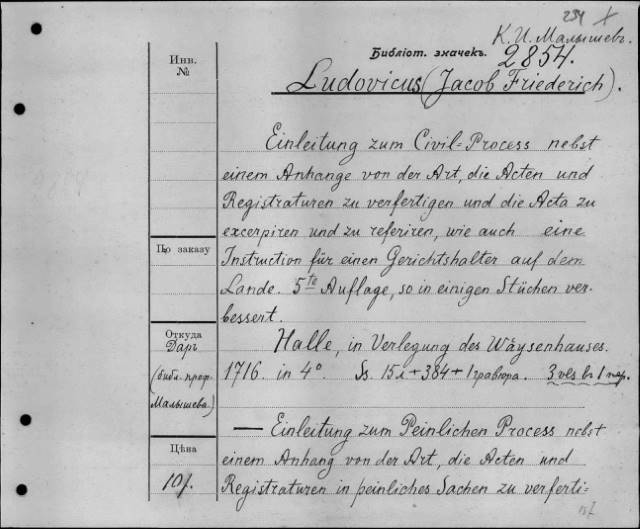 254
К. И. Малышев.
Библіот. значекъ.
2854.
Ludovicus (Jacob Friederich).
Инв.
№
Einleitung zum Civil=Process nebst
einem Anhange von der Art, die Acten und
Registraturen zu verfertigen und die Acta zu
excerpiren und zu referiren, wie auch eine
По заказу
Instruction für einen Gerichtshalter auf dem
Lande. 5te Auflage, so in einigen Stüchen ver-
bessert.
Откуда
Даръ
(библ. проф.
Малышева)
Halle, in Verlegung des Wäysenhauses.
1716. in 4°. Ss. 15л+384+1 гравюра. 3 vls in 1 пер.
— Einleitung zum Peinlichen Process nebst
Цѣна
einem Anhang von der Art, die Acten und
10/.
Registraturen in peinliches Sachen zu verferti=